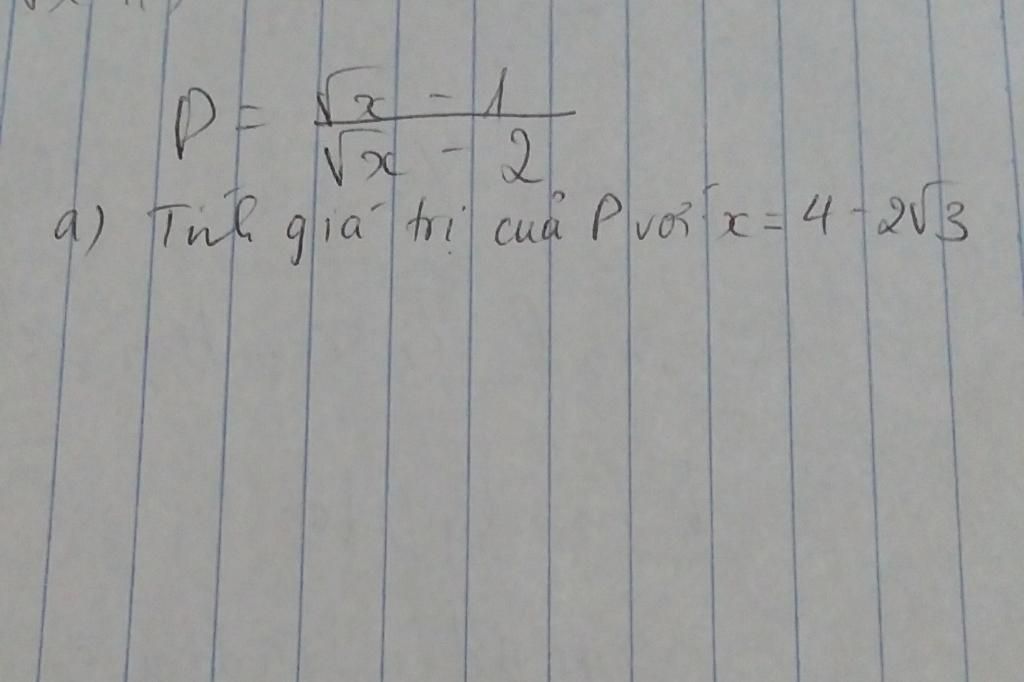 P = \frac{\sqrt{x} - 1}{\sqrt{x} - 2}
a) Tính giá trị của P với x = 4 - 2√3